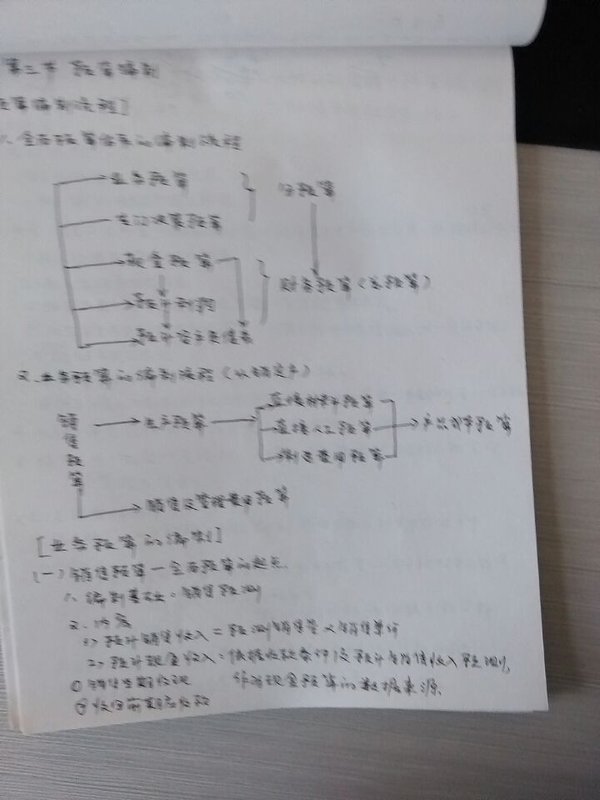 第二节 预算编制
算编制流程]
1、全面预算体系的编制流程
业务预算
分预算
专门决策预算
现金预算
财务预算（总预算）
预计利润
预计资产负债表
2、业务预算的编制流程（以销定产）
销售预算
生产预算
直接材料预算
直接人工预算
制造费用预算
产品成本预算
销售及管理费用预算
[业务预算的编制]
(一)销售预算—全面预算的起点.
1、编制基础：销售预测
2、内容
1) 预计销售收入 = 预测销售量×销售单价
2) 预计现金收入：依据收款条件及预计销售收入预测,
① 销售当期收现
作为现金预算的数据来源.
② 收回前期应收款